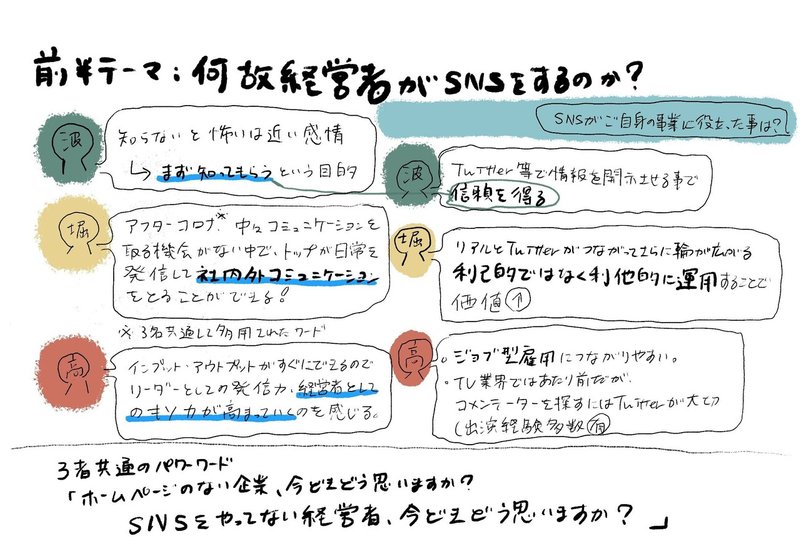 前半テーマ：何故経営者がSNSをするのか？
SNSがご自身の事業に役立った事は？
波
知らないと怖いは近い感情
↳まず知ってもらうという目的
波
Twitter等で情報を開示させる事で
信頼を得る
堀
アフターコロナ※中々コミュニケーションを
取る機会がない中で、トップが日常を
発信して社内外コミュニケーション
をとることができる！
※3名共通して多用されたワード
堀
リアルとTwitterがつながってさらに輪が広がる
利己的ではなく利他的に運用することで
価値↑
高
インプット・アウトプットがすぐにできるので
リーダーとしての発信力、経営者として
のキソ力が高まっていくのを感じる。
高
。ジョブ型雇用につながりやすい。
・TV業界ではあたり前だが、
コメンテーターを探すにはTwitterが大切
（出演経験多数有）
3者共通のパワーワード
「ホームページのない企業、今どきどう思いますか？
SNSをやってない経営者、今どきどう思いますか？」